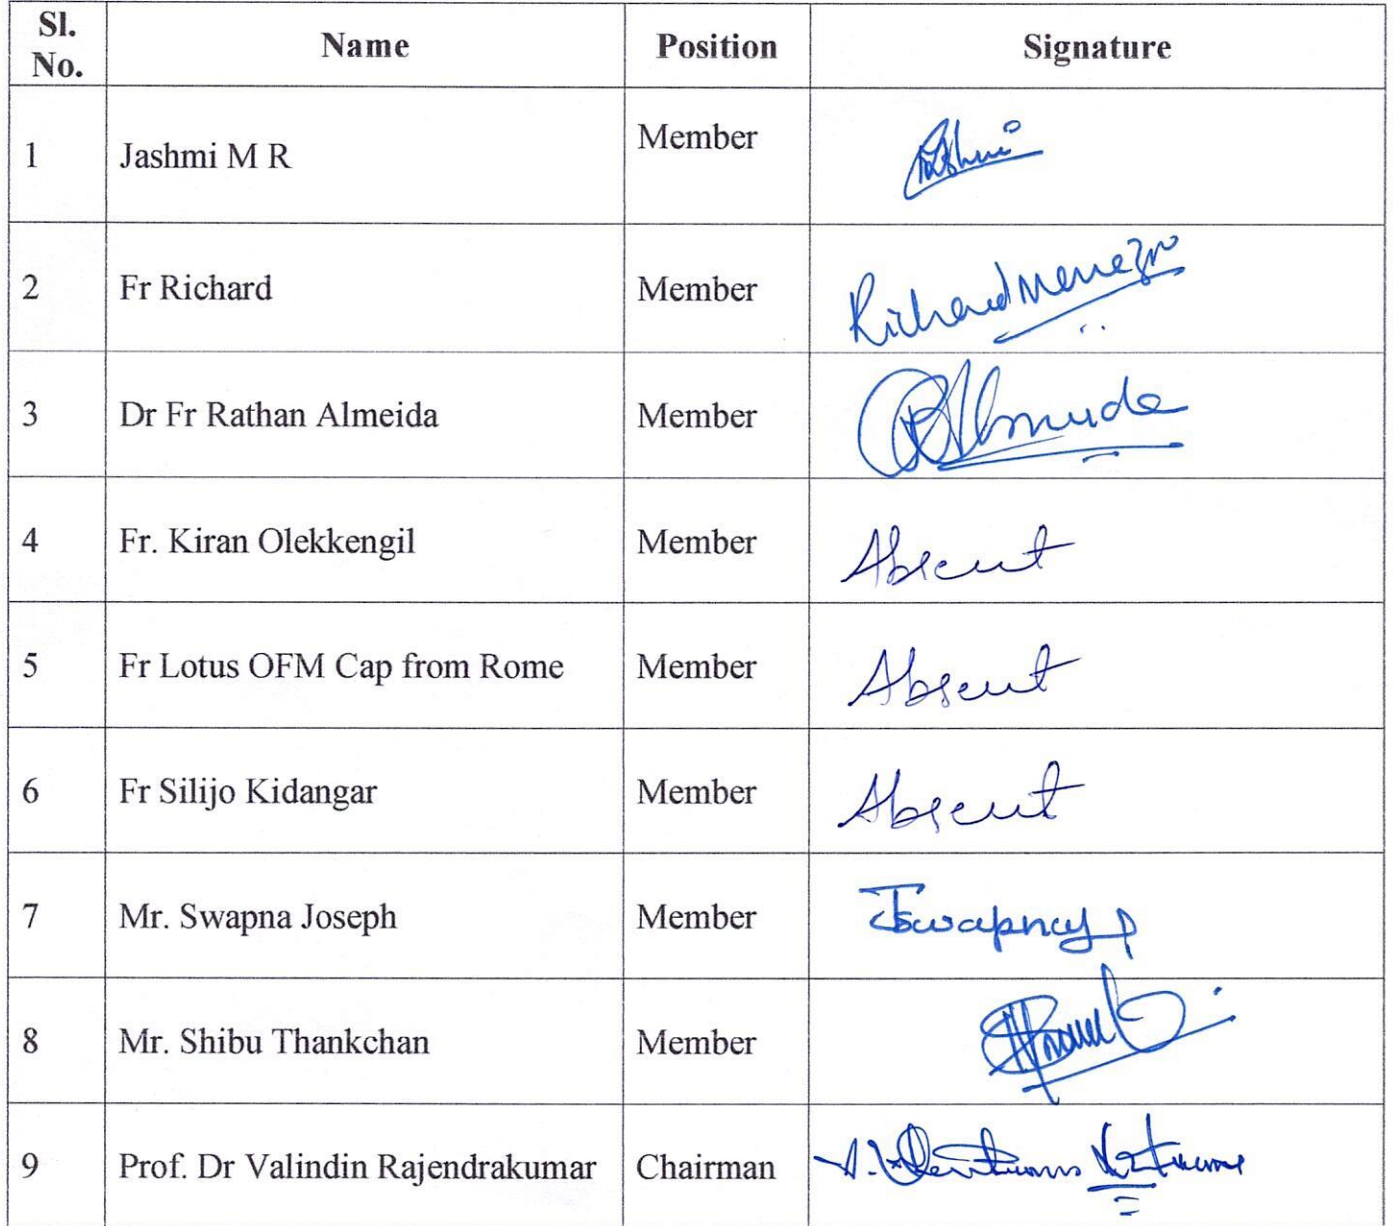 Sl. No. Name Position Signature
1 Jashmi M R Member
2 Fr Richard Member Richard Menezes
3 Dr Fr Rathan Almeida Member RAlmeida
4 Fr. Kiran Olekkengil Member Absent
5 Fr Lotus OFM Cap from Rome Member Absent
6 Fr Silijo Kidangar Member Absent
7 Mr. Swapna Joseph Member
8 Mr. Shibu Thankchan Member
9 Prof. Dr Valindin Rajendrakumar Chairman